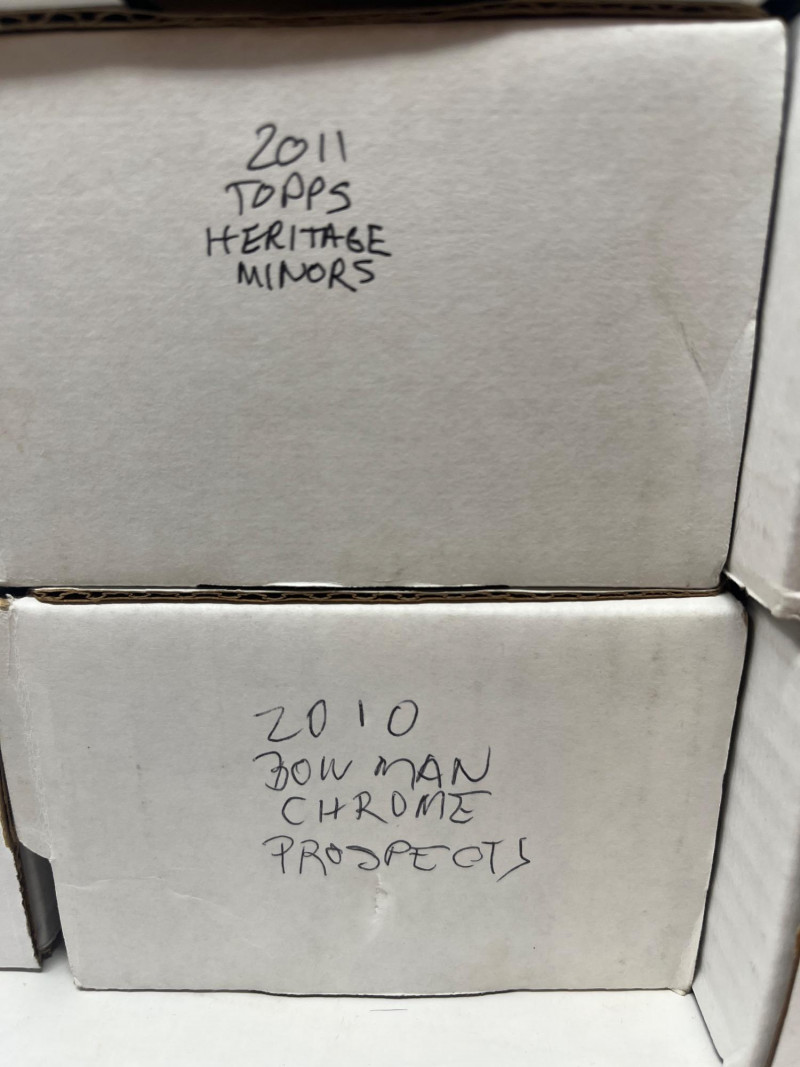 2011
TOPPS
HERITAGE
MINORS
2010
BOWMAN
CHROME
PROSPECTS